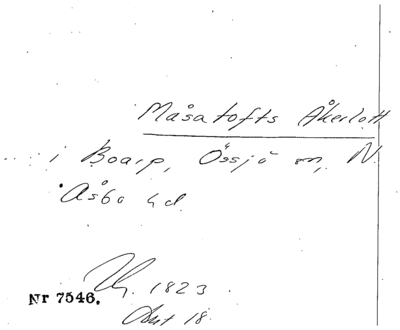 Måsatofts Åkerlott
i Boarp, Össjö sn, N.
Åsbo hd.
1823
Nr 7546.
Akt 18.